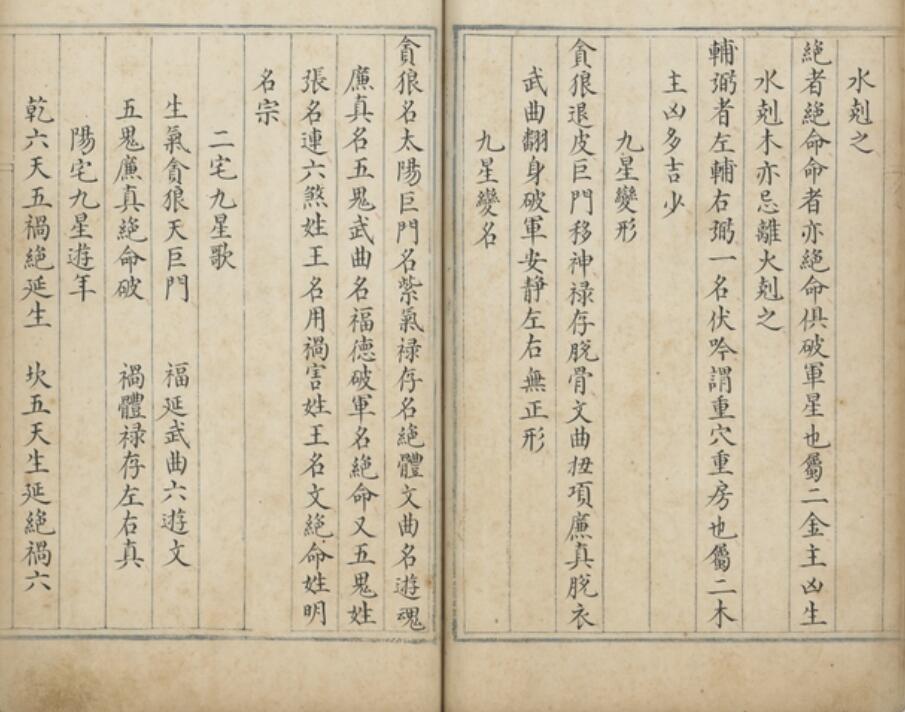 水剋之
絶者絶命命者亦絶命俱破軍星也屬二金主凶生
水剋木亦忌離火剋之
輔弼者左輔右弼一名伏吟謂重穴重房也屬二木
主凶多吉少
九星變形
貪狼退皮巨門移神禄存脫骨文曲扭項廉真脫衣
武曲翻身破軍安静左右無正形
九星變名
貪狼名太陽巨門名紫氣禄存名絶體文曲名遊魂
廉真名五鬼武曲名福德破軍名絶命又五鬼姓
張名連六煞姓王名用禍害姓王名文絶命姓明
名宗
二宅九星歌
生氣貪狼天巨門 福延武曲六遊文
五鬼廉真絶命破 禍體禄存左右真
陽宅九星遊年
乾六天五禍絶延生 坎五天生延絶禍六